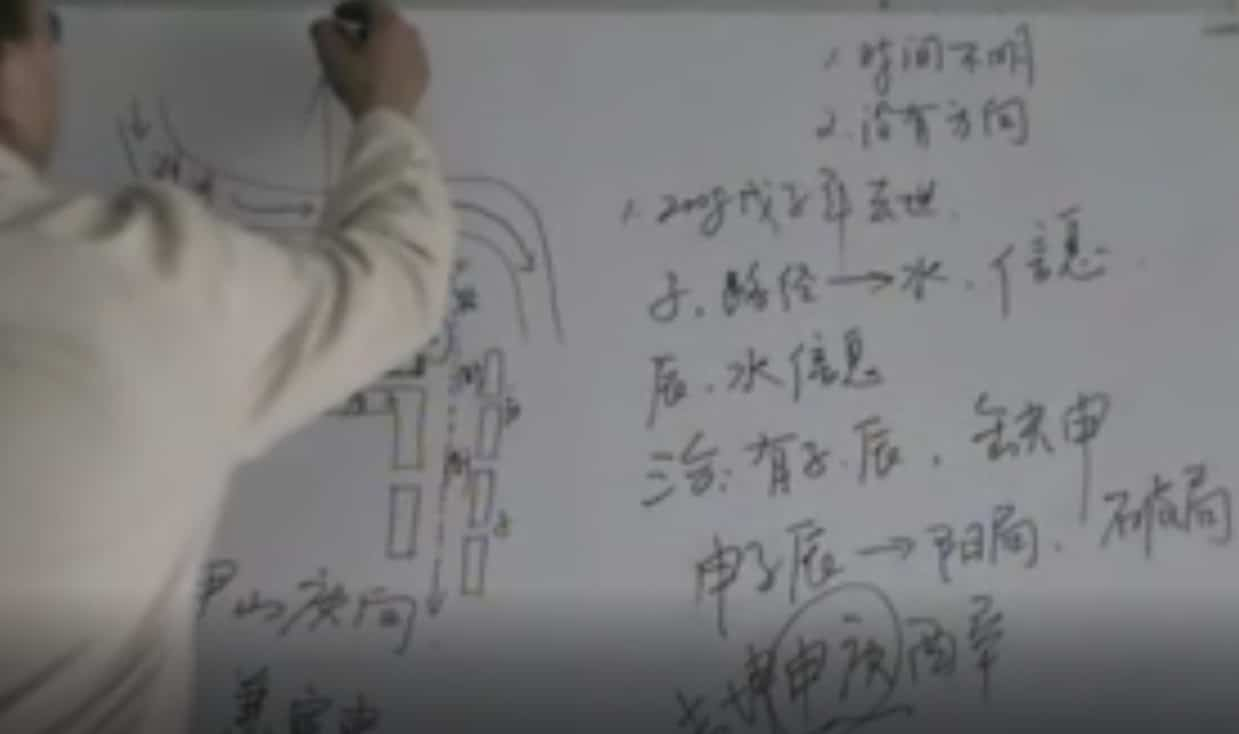 1. 时间不明
2. 没有方向
1. 2008戊子年去世.
子. 路径→水. 信息.
辰. 水信息
三合: 有子.辰. 缺申
申子辰→阳局. 破局
申庚酉辛
甲山庚向
兼寅申